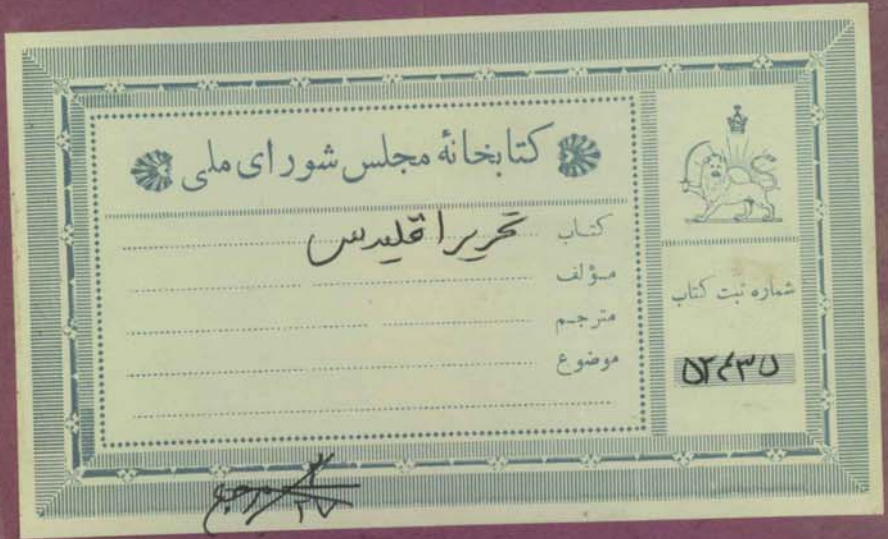 کتابخانهٔ مجلس شورای ملی
کتاب تحریر اقلیدس
مؤلف
مترجم
موضوع
شماره ثبت کتاب
۵۲۴۳۵